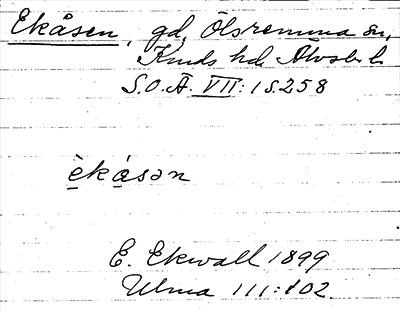 Ekåsen, gd, Ölsremma sn,
Kinds hd. Älvsb. l.
S.O.Ä. VII:1 S.258
èkásən
E. Ekwall 1899
Ulma 111:102.